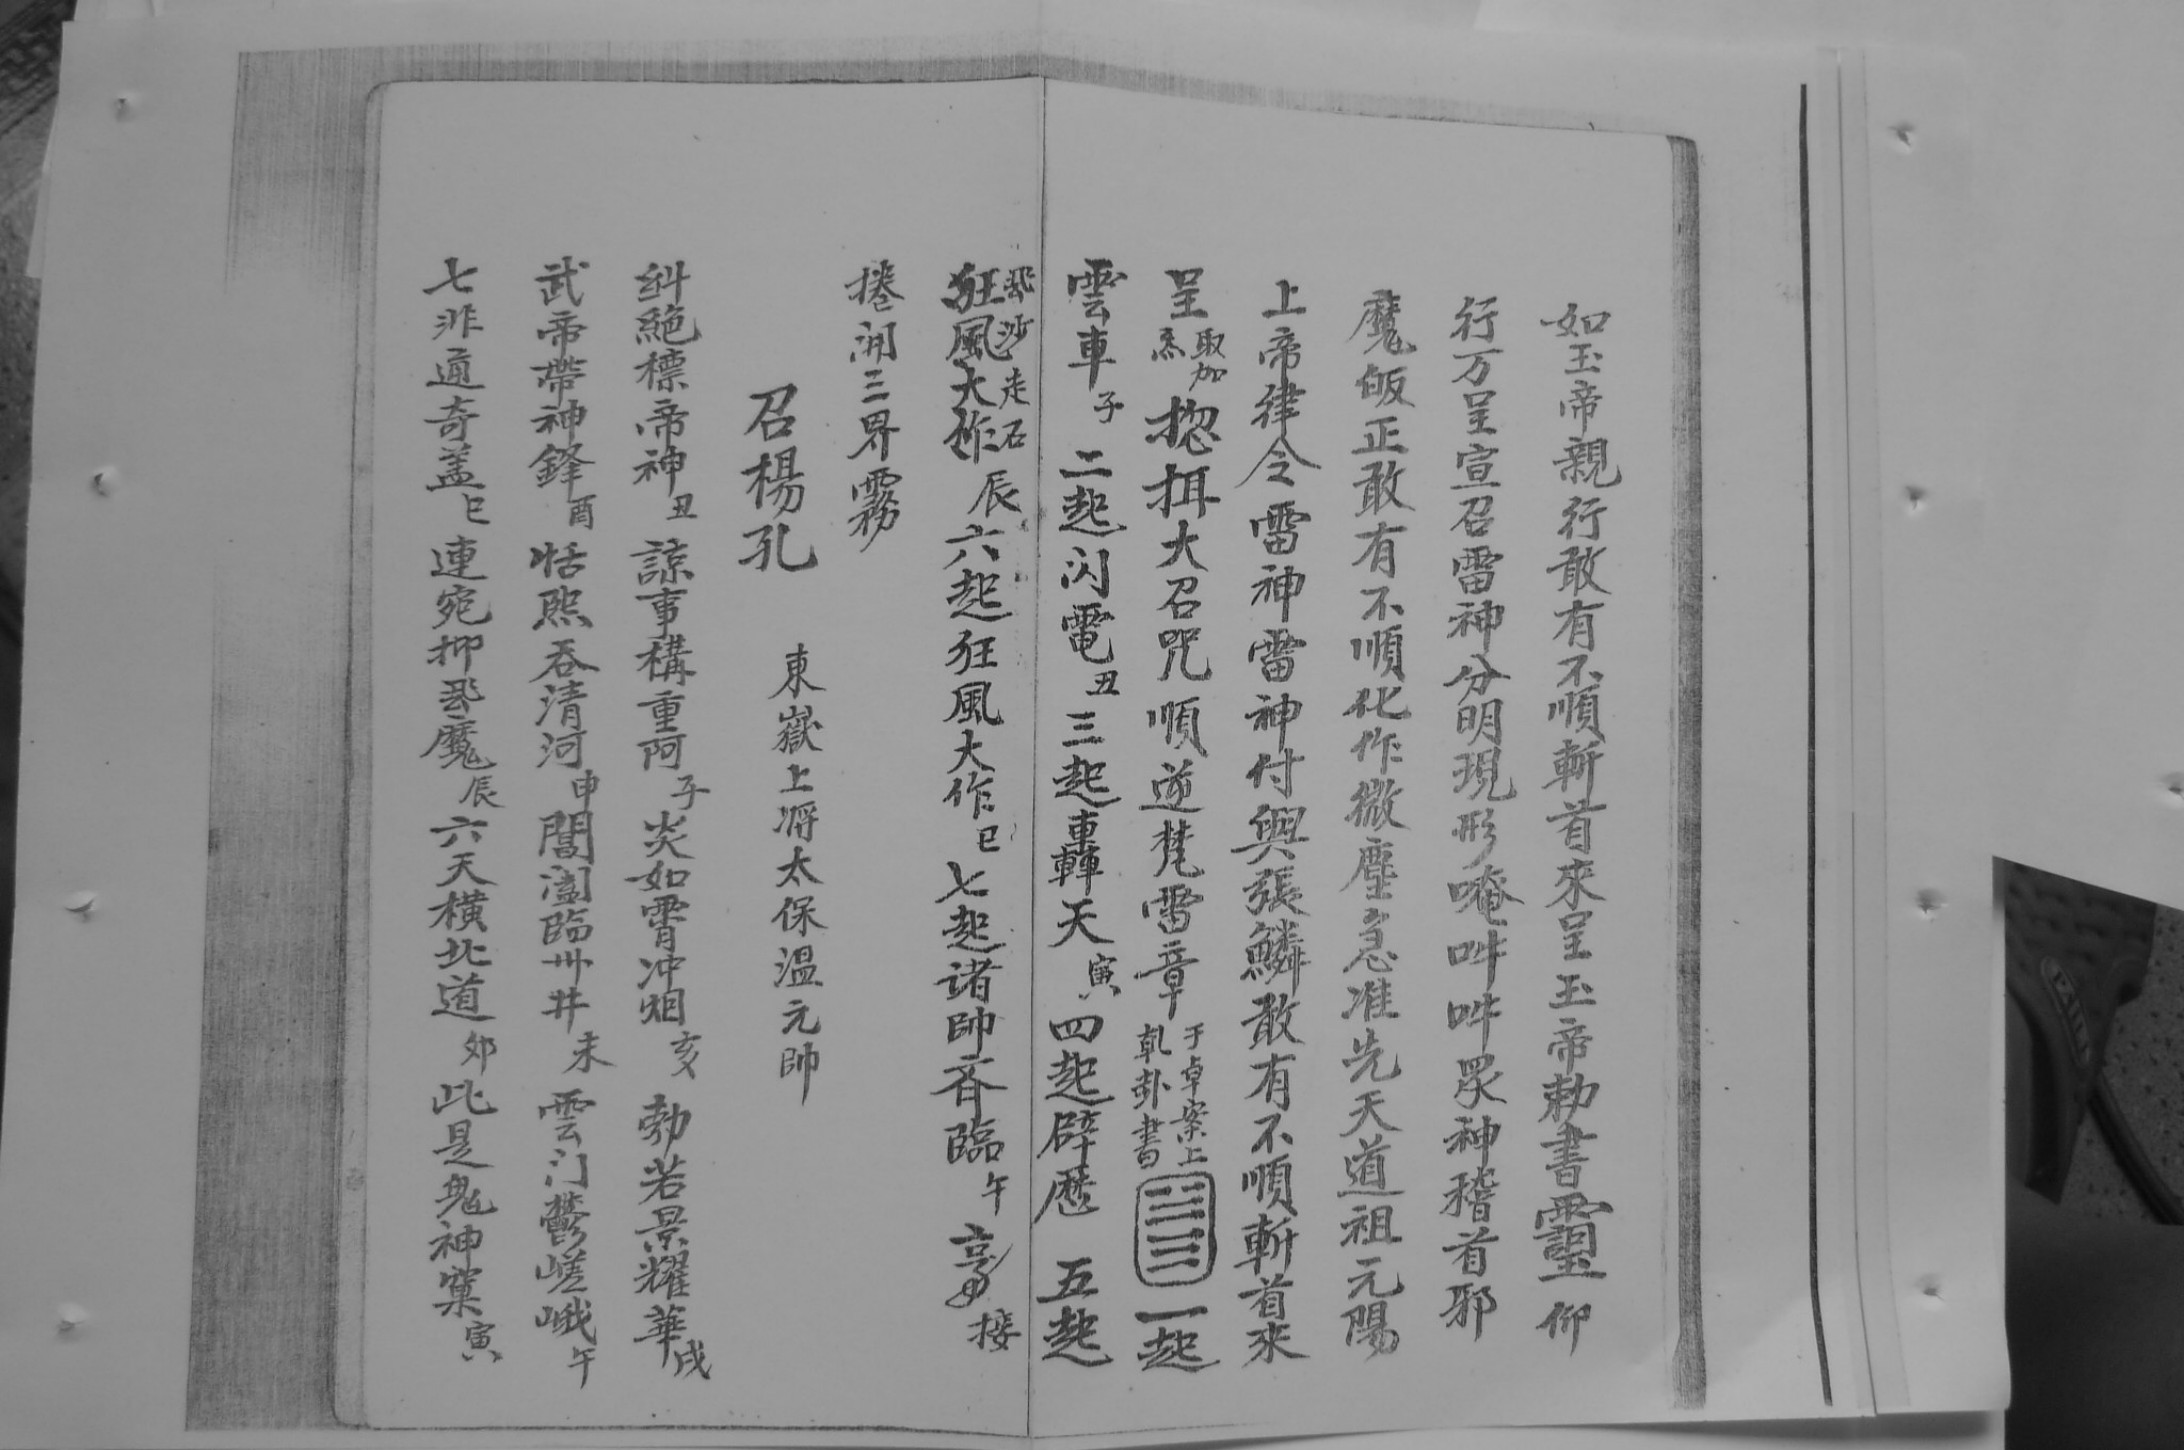 如玉帝親行敢有不順斬首來呈玉帝勅書靈仰
行万呈宣召雷神分明現形唵吽吽眾神稽首邪
魔皈正敢有不順化作微塵急准先天道祖元陽
上帝律令雷神雷神付與張鱗敢有不順斬首來
呈取加炁揔揖大召咒順逆梵雷章于卓案上乹卦書一起
雲車子二起闪電丑三起轟天寅四起辟歷五起
飛沙走石狂風大作辰六起狂風大作巳七起诸帥斉臨午接
捲開三界霧
召楊孔東嶽上将太保溫元帥
糾絕標帝神丑諒事構重阿子炎如霄冲烟亥勃若景耀華戌
武帝帶神鋒酉恬熙吞清河申閶闔臨丗井未雲门鬱嵯峨午
七非通奇盖巳連宛抑飛魔辰六天横北道卯此是鬼神窠寅